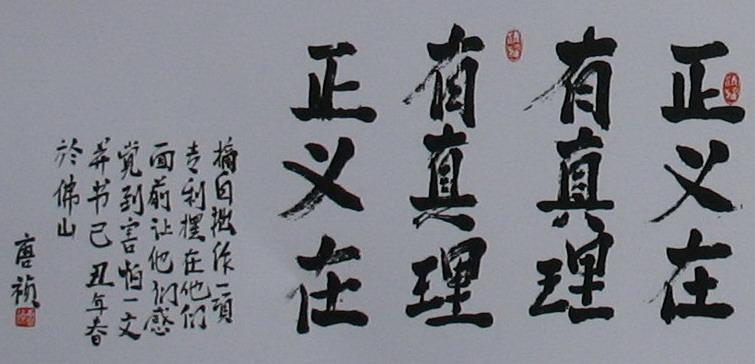 正义在
有真理
有真理
正义在
摘自拙作一项
专利摆在他们
面前让他们感
觉到害怕一文
并书己丑年春
於佛山
唐祯